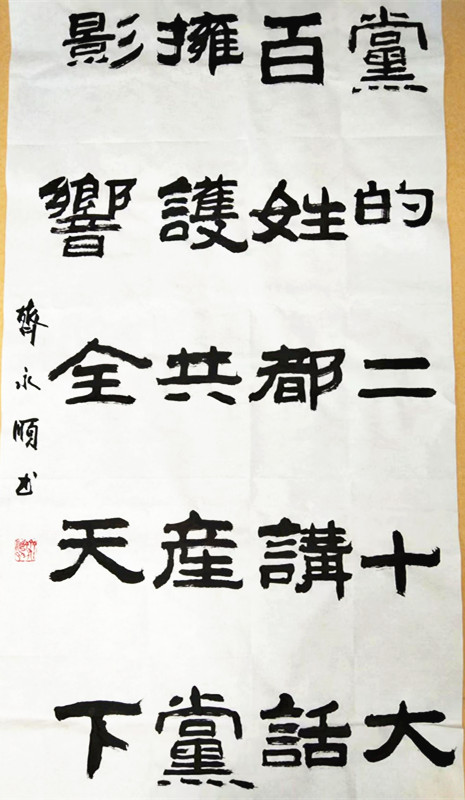 黨的二十大
百姓都講話
擁護共産黨
影響全天下
齊永順书